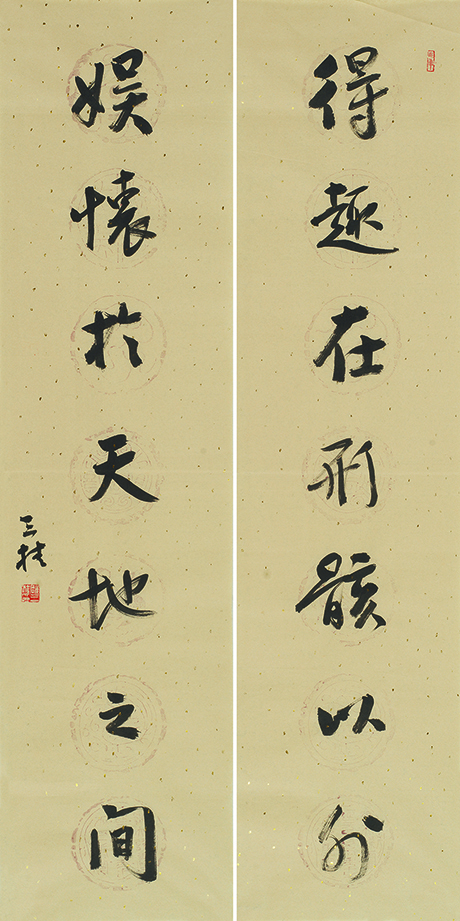 得趣在形骸以外
娱怀於天地之间